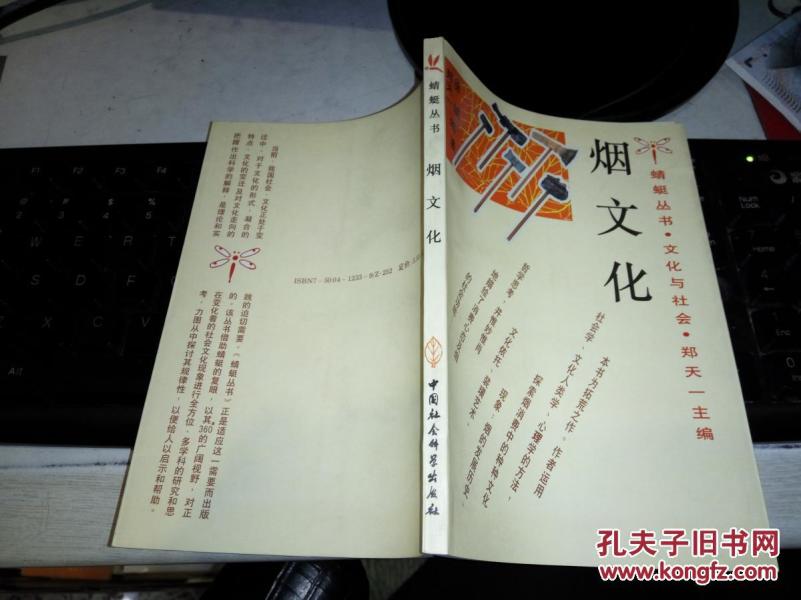 烟文化
蜻蜓丛书·文化与社会·郑天一主编
本书为拓荒之作。作者运用
社会学、文化人类学、心理学的方法，
探索烟消费中的种种文化
现象，烟的发展历史、
文化依托、装璜艺术、
蜻蜓丛书
烟文化
中国社会科学出版社
当前，我国社会、文化正处于变
过中，对于文化的形式、凝合的
特点、文化的变迁及对文化走向的
把握作出科学的解释，是理论和实
践的迫切需要。《蜻蜓丛书》正是适应这一需要而出版
的。该丛书借助蜻蜓的复眼，以其360°的广阔视野，对正
在变化着的社会文化现象进行全方位、多学科的研究和思
考，力图从中探讨其规律性，以便给人以启示和帮助。
ISBN7-5004-1233-9/Z·252
定价
孔夫子旧书网
www.kongfz.com